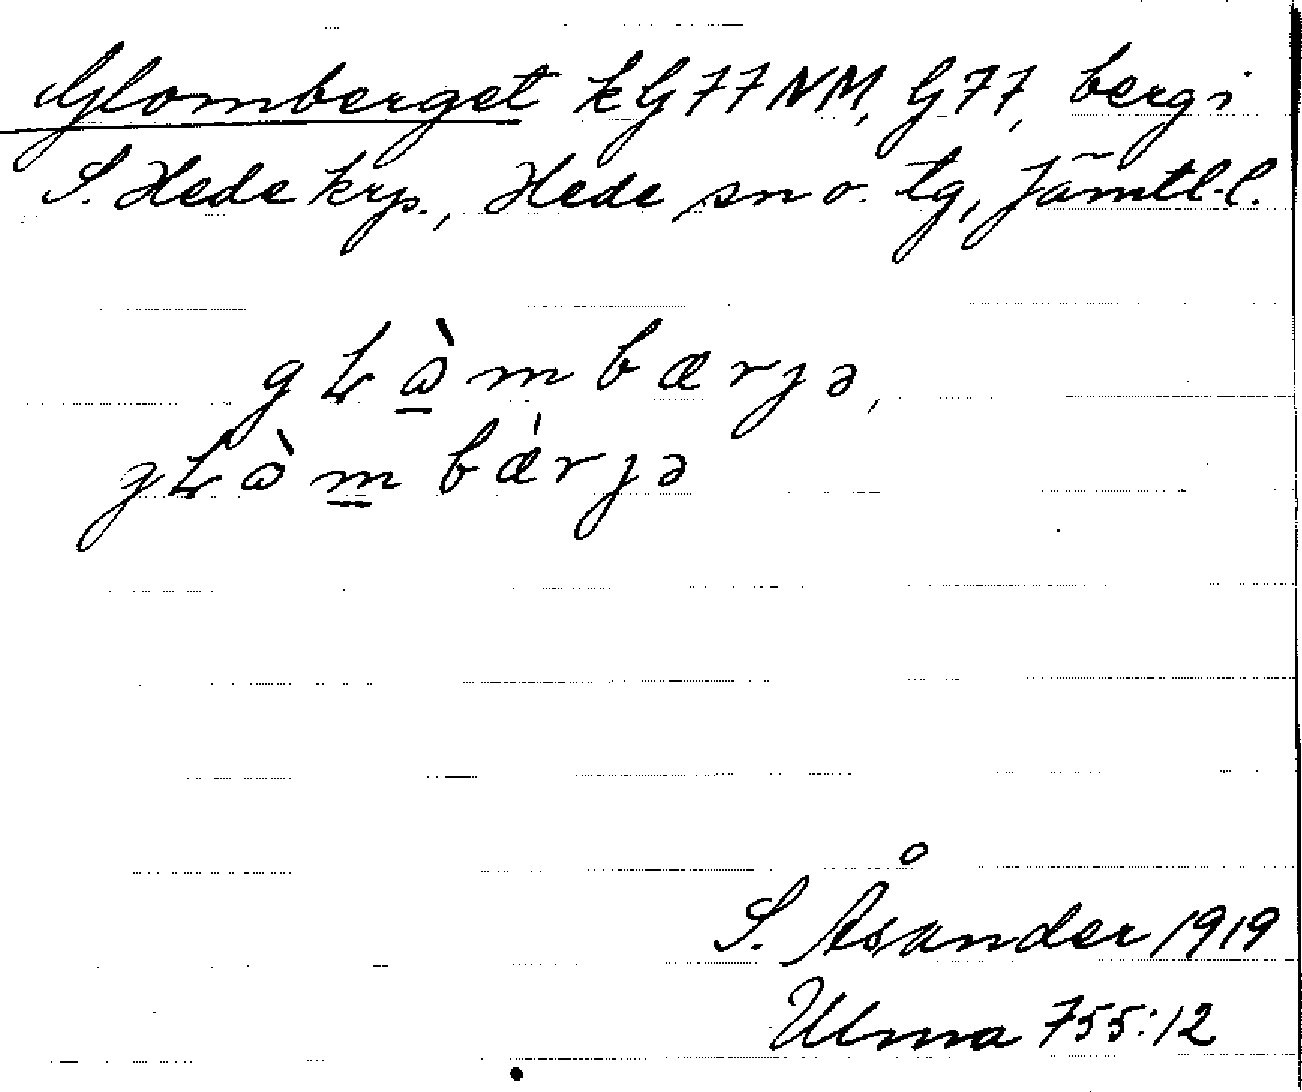 Glomberget kG77NM, G77, berg i
S. Hede krp., Hede sn o. tg, Jämtl.l.
gɫɷ̀mbærjə,
gɫɷ̀mbǽrjə
S. Åsander 1919
Ulma 755:12